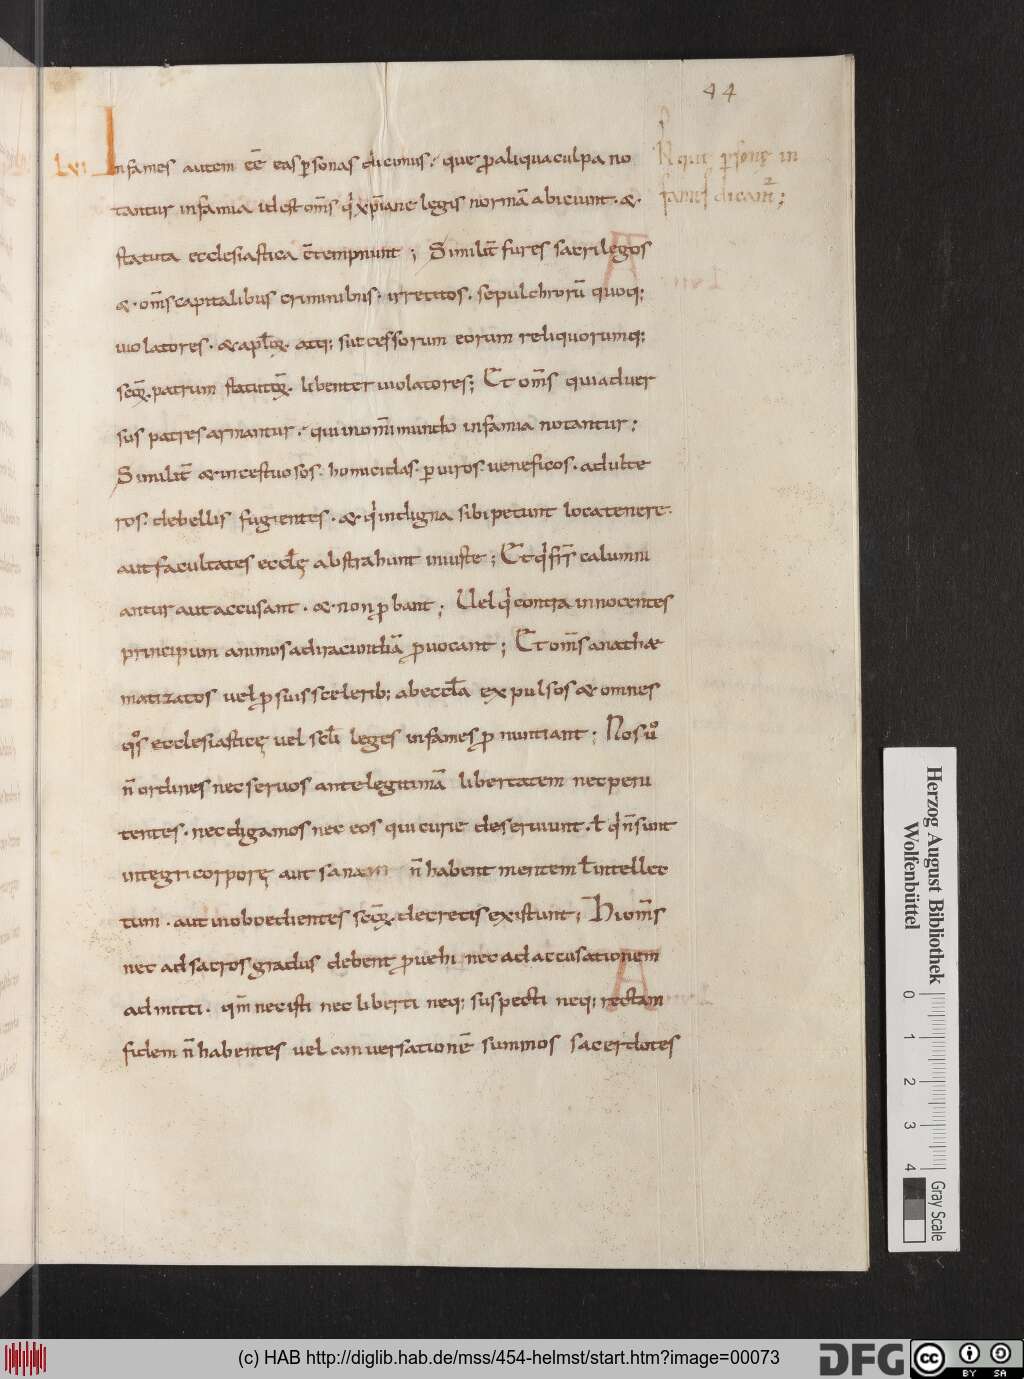 44
lxi Infames autem eē eas ꝑsonas dicimus; que ꝓ aliqua culpa no
R qui ꝑsonę in
fames dicant᷑;
tantur infamia idest om̄s q̇ xp̄iane legis normā abiciunt. &
statuta ecclesiastica c̄tempnunt; Similit̄ fures sacrilegos
&. om̄s capitalibus criminibus. irretitos. sepulchrorū quoq;
uiolatores. & apl̄oꝝ. atq; successorum eorum reliquorumq;
scōꝝ. patrum statutoꝝ. libenter uiolatores; Et om̄s qui aduer
sus patres armantur. qui in om̄i mundo infamia notantur;
Similit̄ & incestuosos. homicidas. ꝑiuros. ueneficos. adulte
ros. de bellis fugientes. & q̇ indigna sibi petunt loca tenere.
aut facultates eccl̄ę abstrahunt iniuste; Et q̇ fr̄s calumni
antur aut accusant. & non ꝓbant; Uel q̇ contra innocentes
principum animos ad iracundiā ꝓuocant; Et om̄s anathæ
matizatos uel ꝓ suis scelerib; ab eccl̄a expulsos & omnes
qͦs ecclesiasticę uel scl̄i leges infames ꝓnuntiant; Nos uͦ
n̄ ordines nec seruos ante legitimā libertatem nec peni
tentes. nec digamos nec eos qui curie deseruiunt. ł q̇ n̄ sunt
integri corporę aut sanam n̄ habent mentem ł intellec
tum. aut inoboedientes scōꝝ. decretis existunt; Hi om̄s
nec ad sacros gradus debent ꝓuehi nec ad accusationem
admitti. qm̄ nec isti nec liberti neq; suspecti neq; rectam
fidem n̄ habentes uel conuersationē summos sacerdotes
Herzog August Bibliothek
Wolfenbüttel
0 1 2 3 4
Gray Scale
(c) HAB http://diglib.hab.de/mss/454-helmst/start.htm?image=00073
DFG
cc BY SA